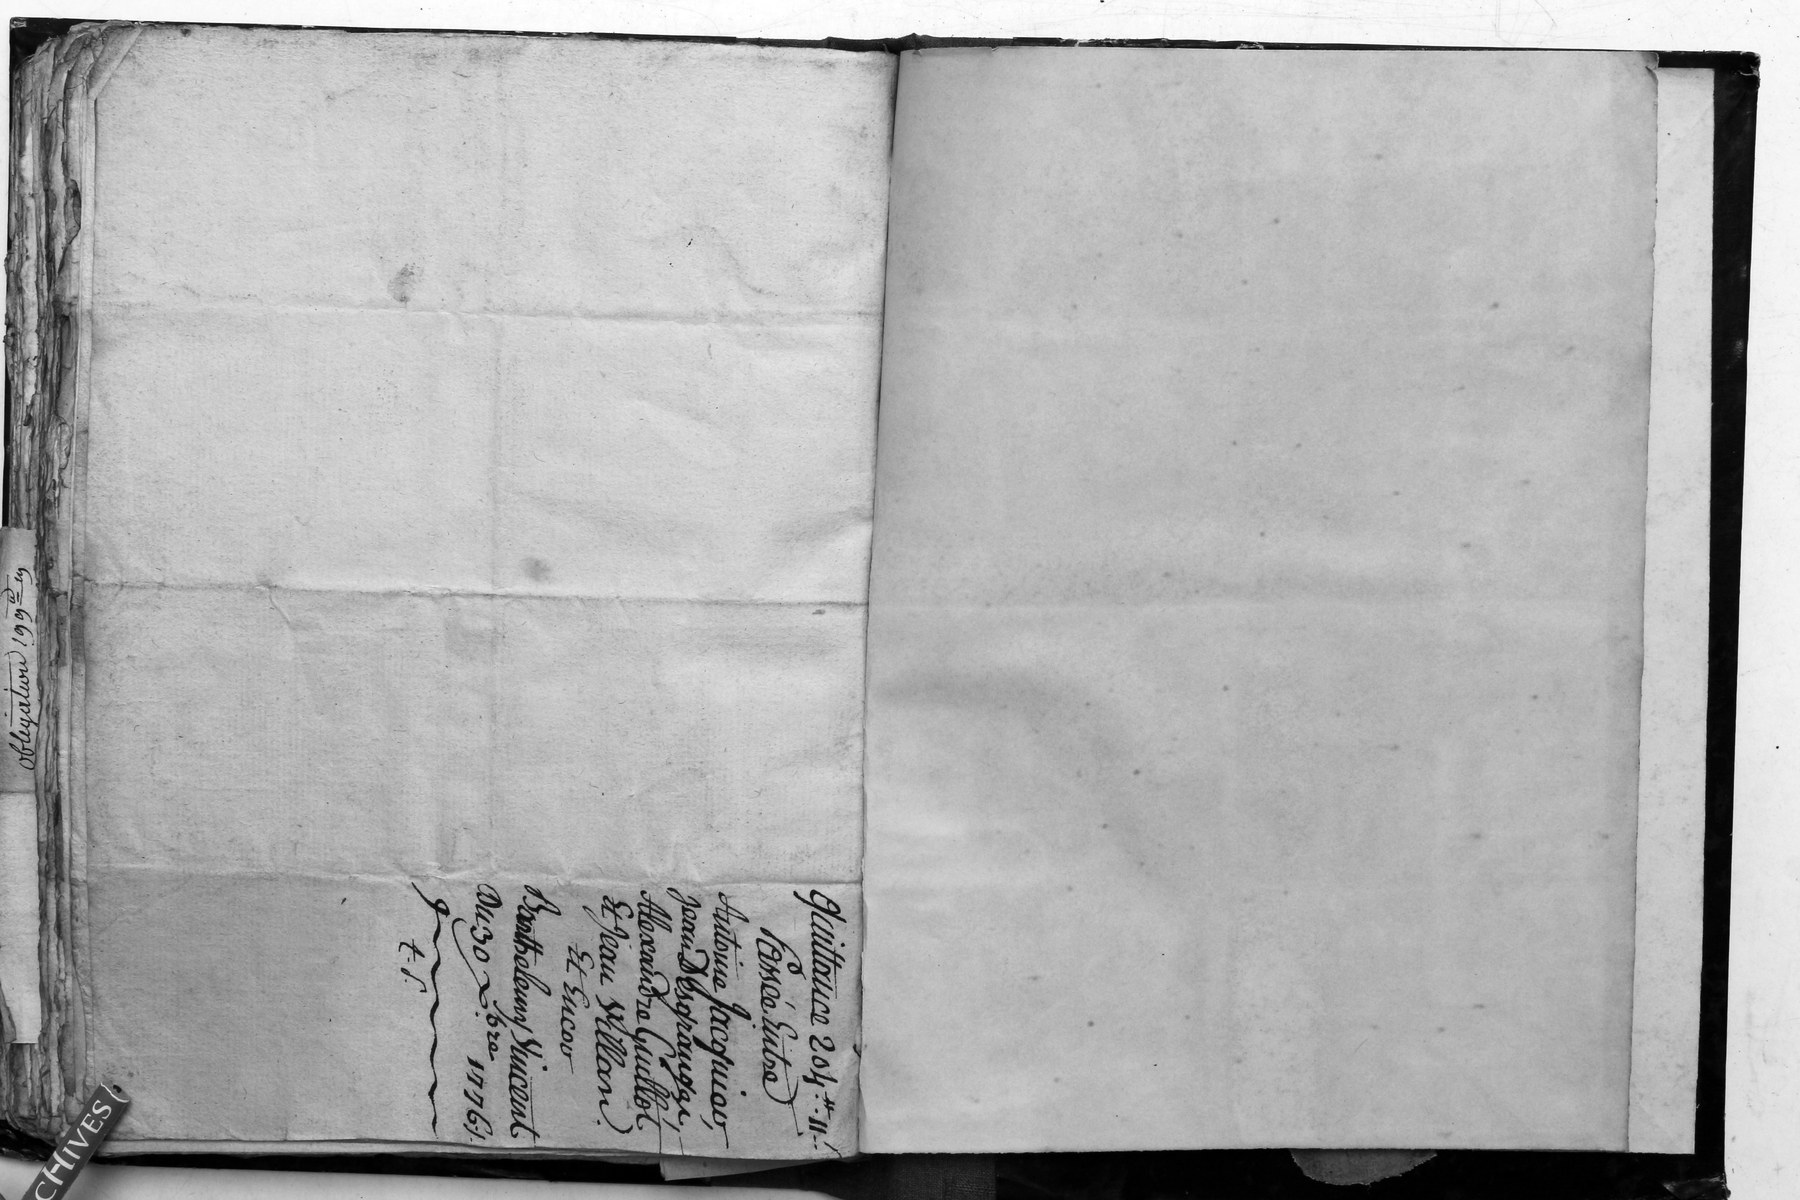 Quittance 204# 11s
Passée Entre
Antoine Jacquiau,
Jean Desgranges,
Alexandre Guillot,
Et Jean Villan.
Et Encor
Barthelemy Vincent
Du 30 xbre 1776.
t. s.
obligation 199
CHIVES